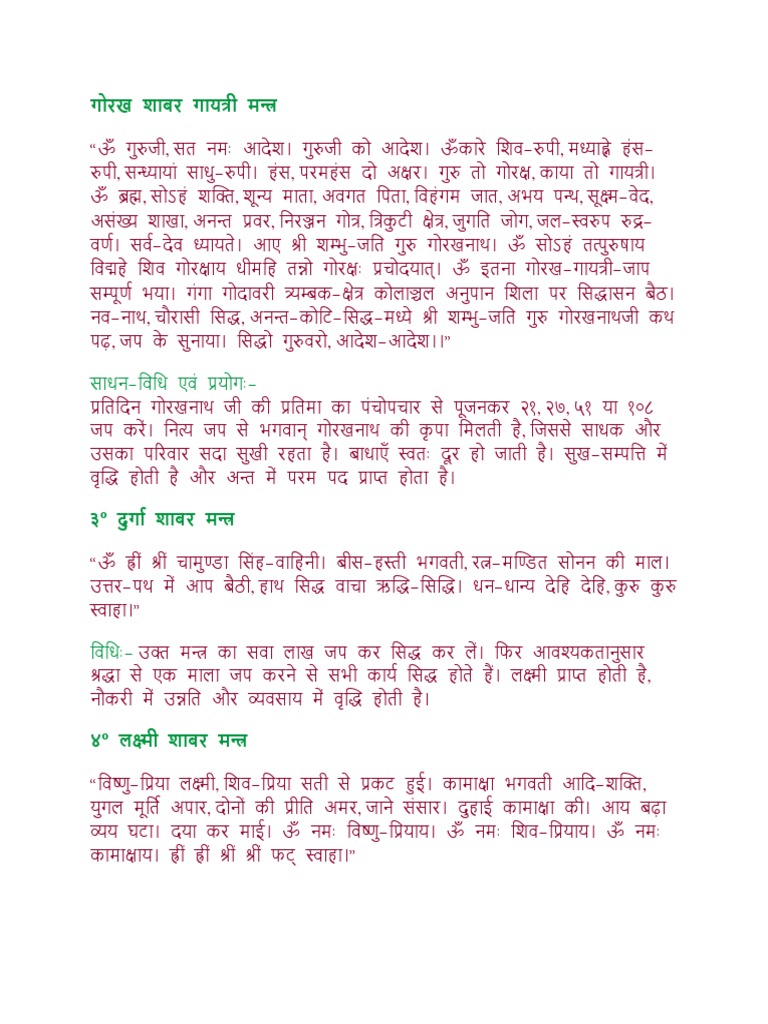 गोरख शाबर गायत्री मन्त्र
“ॐ गुरुजी, सत नमः आदेश। गुरुजी को आदेश। ॐकारे शिव-रुपी, मध्याह्ने हंस-
रुपी, सन्ध्यायां साधु-रुपी। हंस, परमहंस दो अक्षर। गुरु तो गोरक्ष, काया तो गायत्री।
ॐ ब्रह्म, सोऽहं शक्ति, शून्य माता, अवगत पिता, विहंगम जात, अभय पन्थ, सूक्ष्म-वेद,
असंख्य शाखा, अनन्त प्रवर, निरञ्जन गोत्र, त्रिकुटी क्षेत्र, जुगति जोग, जल-स्वरुप रुद्र-
वर्ण। सर्व-देव ध्यायते। आए श्री शम्भु-जति गुरु गोरखनाथ। ॐ सोऽहं तत्पुरुषाय
विद्महे शिव गोरक्षाय धीमहि तन्नो गोरक्षः प्रचोदयात्। ॐ इतना गोरख-गायत्री-जाप
सम्पूर्ण भया। गंगा गोदावरी त्र्यम्बक-क्षेत्र कोलाञ्चल अनुपान शिला पर सिद्धासन बैठ।
नव-नाथ, चौरासी सिद्ध, अनन्त-कोटि-सिद्ध-मध्ये श्री शम्भु-जति गुरु गोरखनाथजी कथ
पढ़, जप के सुनाया। सिद्धो गुरुवरो, आदेश-आदेश।।”
साधन-विधि एवं प्रयोगः-
प्रतिदिन गोरखनाथ जी की प्रतिमा का पंचोपचार से पूजनकर २१, २७, ५१ या १०८
जप करें। नित्य जप से भगवान् गोरखनाथ की कृपा मिलती है, जिससे साधक और
उसका परिवार सदा सुखी रहता है। बाधाएँ स्वतः दूर हो जाती है। सुख-सम्पत्ति में
वृद्धि होती है और अन्त में परम पद प्राप्त होता है।
३॰ दुर्गा शाबर मन्त्र
“ॐ ह्रीं श्रीं चामुण्डा सिंह-वाहिनी। बीस-हस्ती भगवती, रत्न-मण्डित सोनन की माल।
उत्तर-पथ में आप बैठी, हाथ सिद्ध वाचा ऋद्धि-सिद्धि। धन-धान्य देहि देहि, कुरु कुरु
स्वाहा।”
विधिः- उक्त मन्त्र का सवा लाख जप कर सिद्ध कर लें। फिर आवश्यकतानुसार
श्रद्धा से एक माला जप करने से सभी कार्य सिद्ध होते हैं। लक्ष्मी प्राप्त होती है,
नौकरी में उन्नति और व्यवसाय में वृद्धि होती है।
४॰ लक्ष्मी शाबर मन्त्र
“विष्णु-प्रिया लक्ष्मी, शिव-प्रिया सती से प्रकट हुई। कामाक्षा भगवती आदि-शक्ति,
युगल मूर्ति अपार, दोनों की प्रीति अमर, जाने संसार। दुहाई कामाक्षा की। आय बढ़ा
व्यय घटा। दया कर माई। ॐ नमः विष्णु-प्रियाय। ॐ नमः शिव-प्रियाय। ॐ नमः
कामाक्षाय। ह्रीं ह्रीं श्रीं श्रीं फट् स्वाहा।”